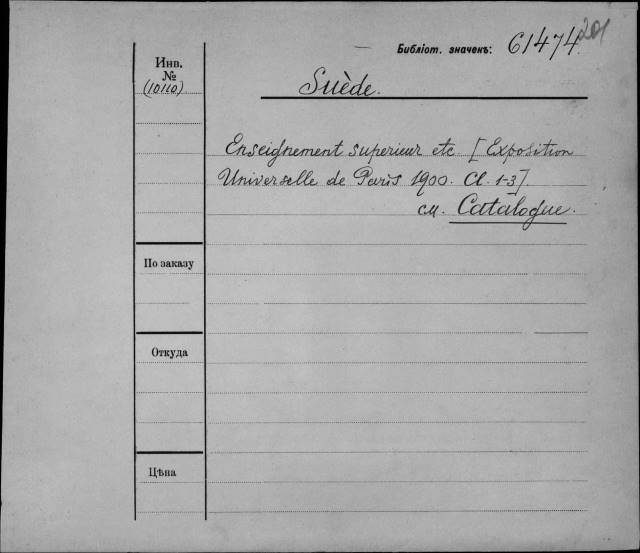 201
Библіот. значекъ: 61474
Инв.
№
(10110)
Suède.
Enseignement superieur etc [Exposition
Universelle de Paris 1900. Cl. 1-3].
см. Catalogue.
По заказу
Откуда
Цѣна